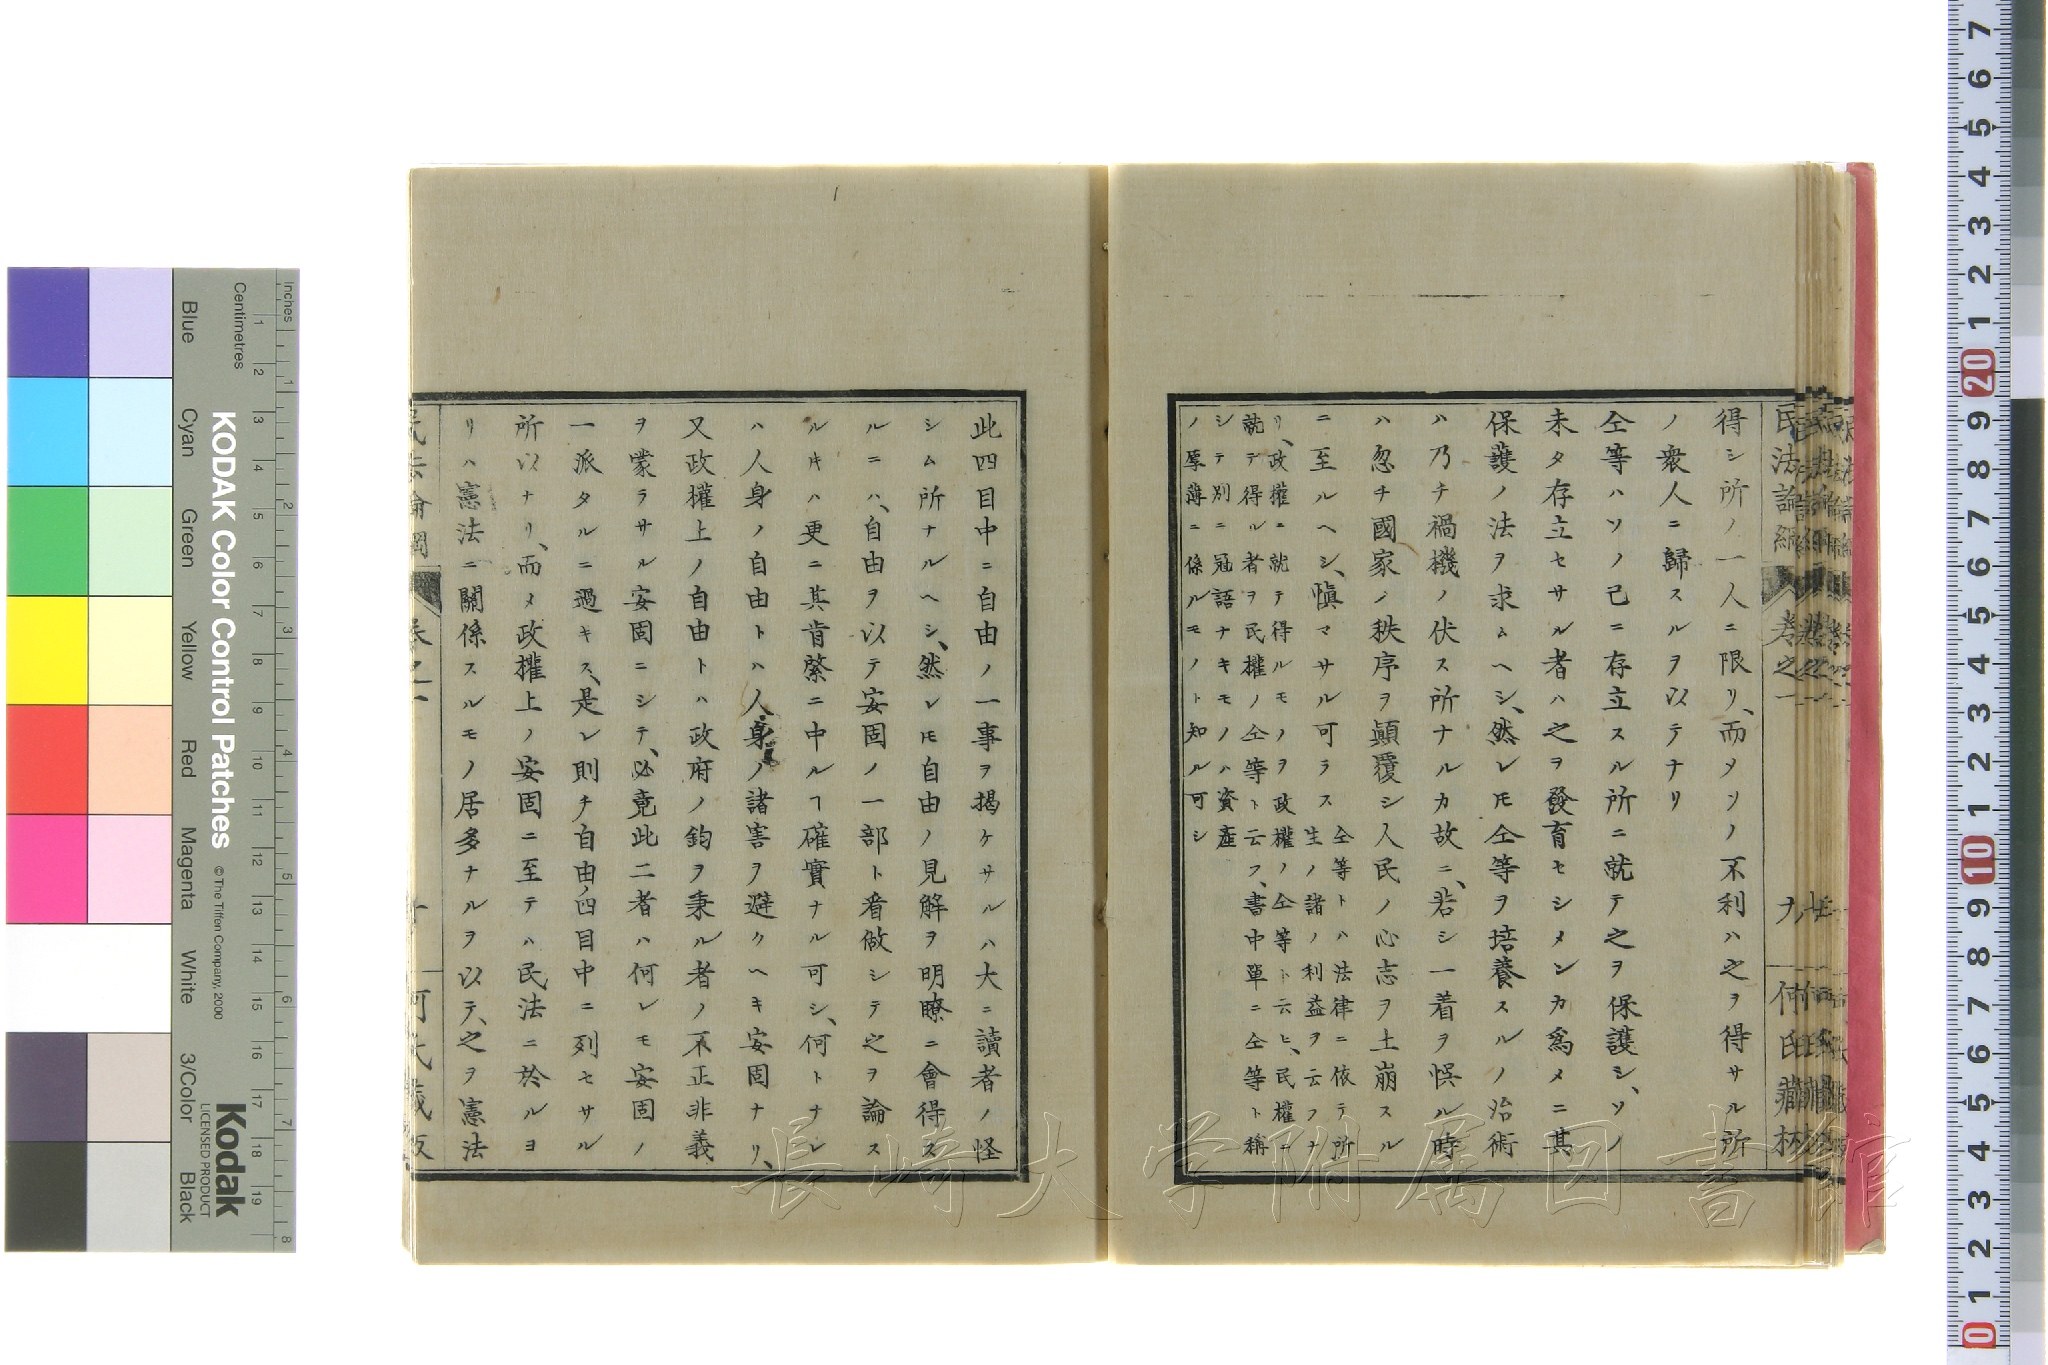 得シ所ノ一人ニ限リ、而メソノ不利ハ之ヲ得サル所
ノ衆人ニ歸スルヲ以テナリ
仝等ハソノ已ニ存立スル所ニ就テ之ヲ保護シ、ソノ
未タ存立セサル者ハ之ヲ發育セシメンカ爲メニ其
保護ノ法ヲ求ムヘシ、然レ𪜈仝等ヲ培養スルノ治術
ハ乃チ禍機ノ伏ス所ナルカ故ニ、若シ一着ヲ悞ル時
ハ忽チ國家ノ秩序ヲ顚覆シ人民ノ心志ヲ土崩スル
ニ至ルヘシ、愼マサル可ラス
仝等トハ法律ニ依テ所
生ノ諸ノ利益ヲ云フナ
リ、政權ニ就テ得ルモノヲ政權ノ仝等ト云ヒ、民權ニ
就テ得ル者ヲ民權ノ仝等ト云フ、書中單ニ仝等ト稱
シテ別ニ冠語ナキモノハ資産
ノ厚薄ニ係ルモノト知ル可シ
此四目中ニ自由ノ一事ヲ揭ケサルハ大ニ讀者ノ怪
シム所ナルヘシ、然レ𪜈自由ノ見解ヲ明瞭ニ會得ス
ルニハ、自由ヲ以テ安固ノ一部ト看做シテ之ヲ論ス
ル片ハ更ニ其肯綮ニ中ルヿ確實ナル可シ、何トナレ
ハ人身ノ自由トハ人身ノ諸害ヲ避クヘキ安固ナリ、
又政權上ノ自由トハ政府ノ鈞ヲ秉ル者ノ不正非義
ヲ蒙ラサル安固ニシテ、必竟此二者ハ何レモ安固ノ
一派タルニ過キス、是レ則チ自由ノ四目中ニ列セサル
所以ナリ、而メ政權上ノ安固ニ至テハ民法ニ於ルヨ
リハ憲法ニ關係スルモノ居多ナルヲ以テ、之ヲ憲法
民法論綱
卷之一
何氏藏板
長崎大学附属図書館
KODAK Color Control Patches
© The Tiffen Company, 2000
Kodak
LICENSED PRODUCT
Inches
Centimetres
Blue
Cyan
Green
Yellow
Red
Magenta
White
3/Color
Black